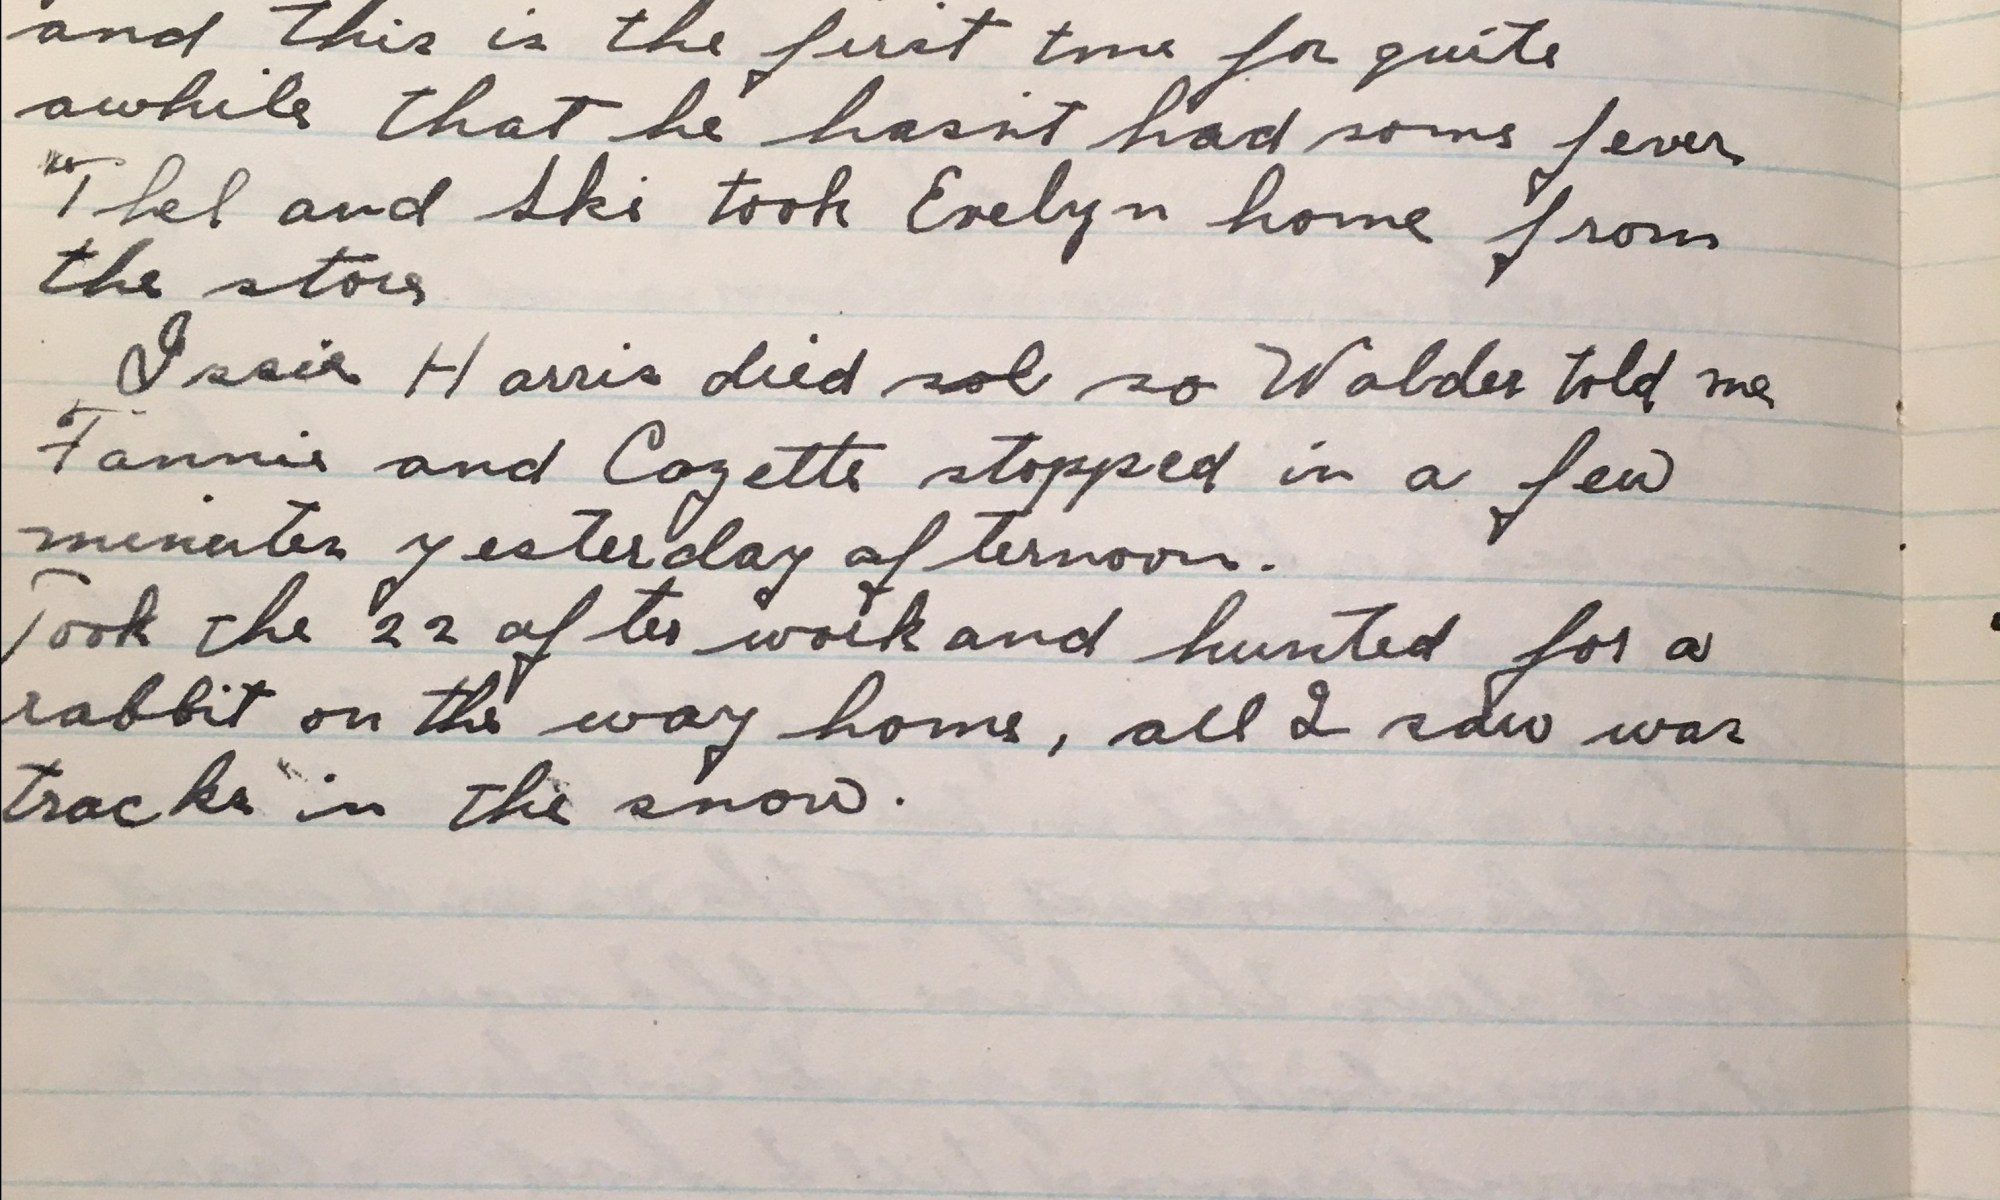 and this is the first time for quite
awhile that he hasn't had some fever
Thel and Ski took Evelyn home from
the store
Issie Harris died sol so Walder told me
Fannie and Cozette stopped in a few
minutes yesterday afternoon.
Took the 22 after work and hunted for a
rabbit on the way home, all I saw was
tracks in the snow.